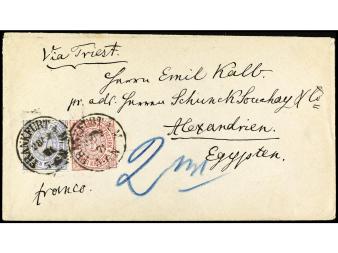 Via Triest.
Herrn Emil Kalb.
pr. adr. Herren Schunck Souchay & Co
Alexandrien.
Egypten.
franco.
2
FRANKFURT A. M.
FRANKFURT A. M.